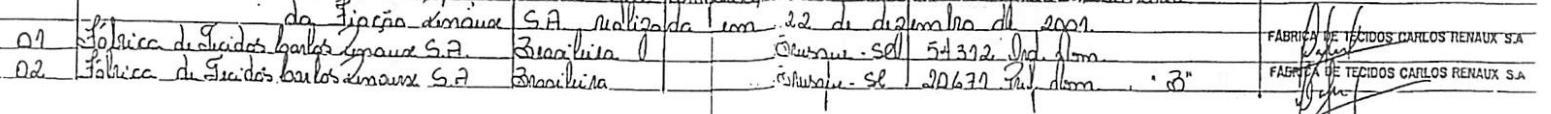 da Fiação Renaux S.A realizada em 22 de dezembro de 2001.
01 Fábrica de Tecidos Carlos Renaux S.A. Brasileira Brusque - SC 54312 Ord. Nom. FÁBRICA DE TECIDOS CARLOS RENAUX S.A
02 Fábrica de Tecidos Carlos Renaux S.A Brasileira Brusque - SC 20671 Pref. Nom. "B" FÁBRICA DE TECIDOS CARLOS RENAUX S.A